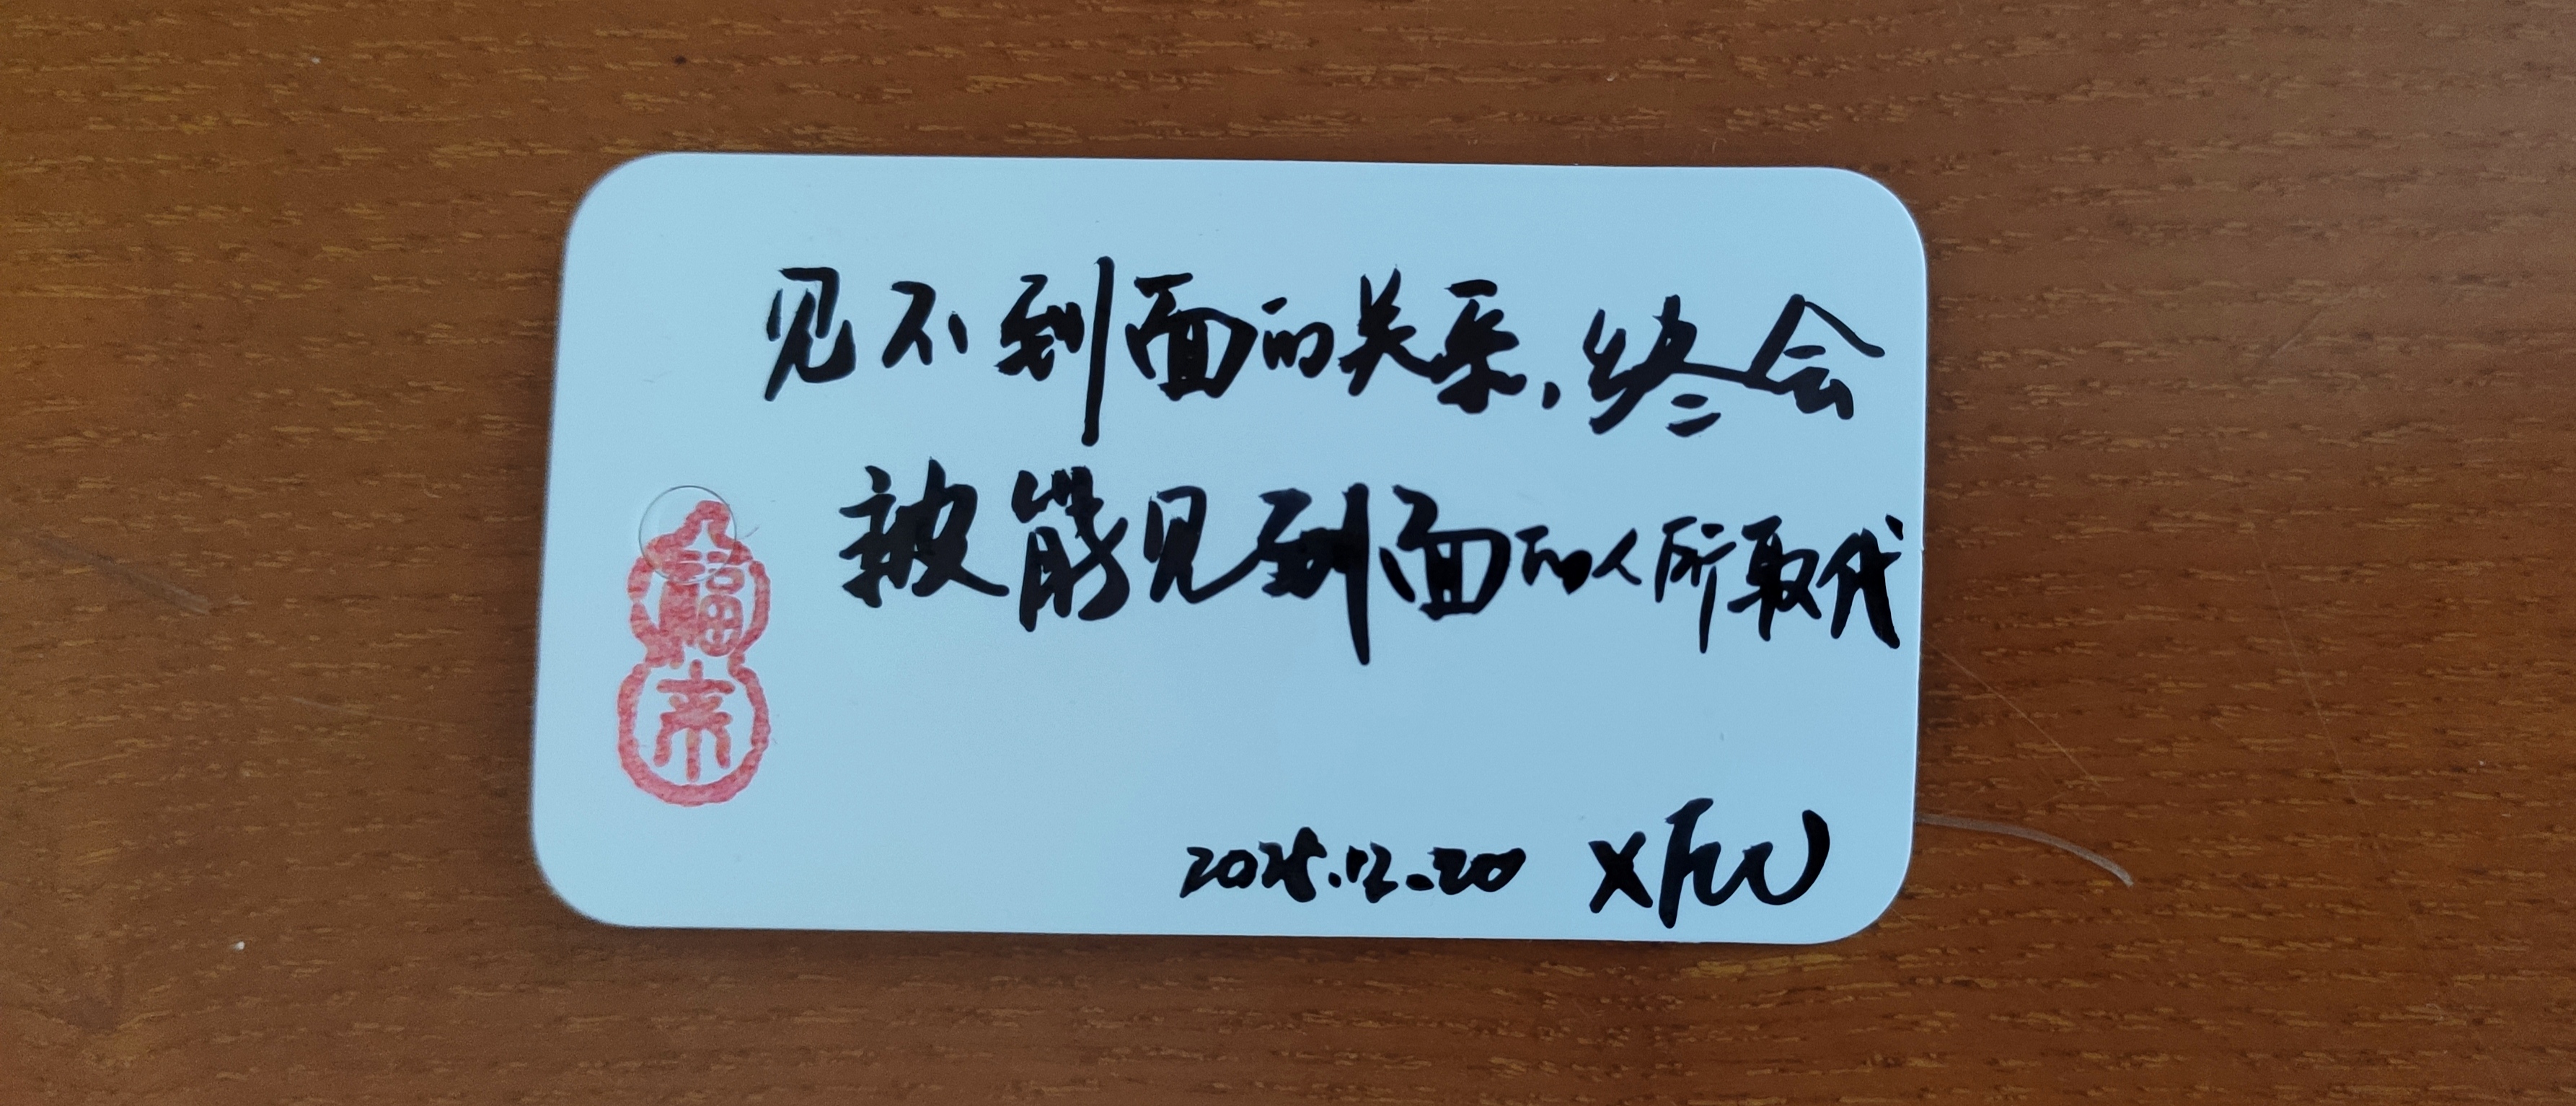 见不到面的关系，终会
被能见到面的人所取代
福
来
2025.12.20 XFW